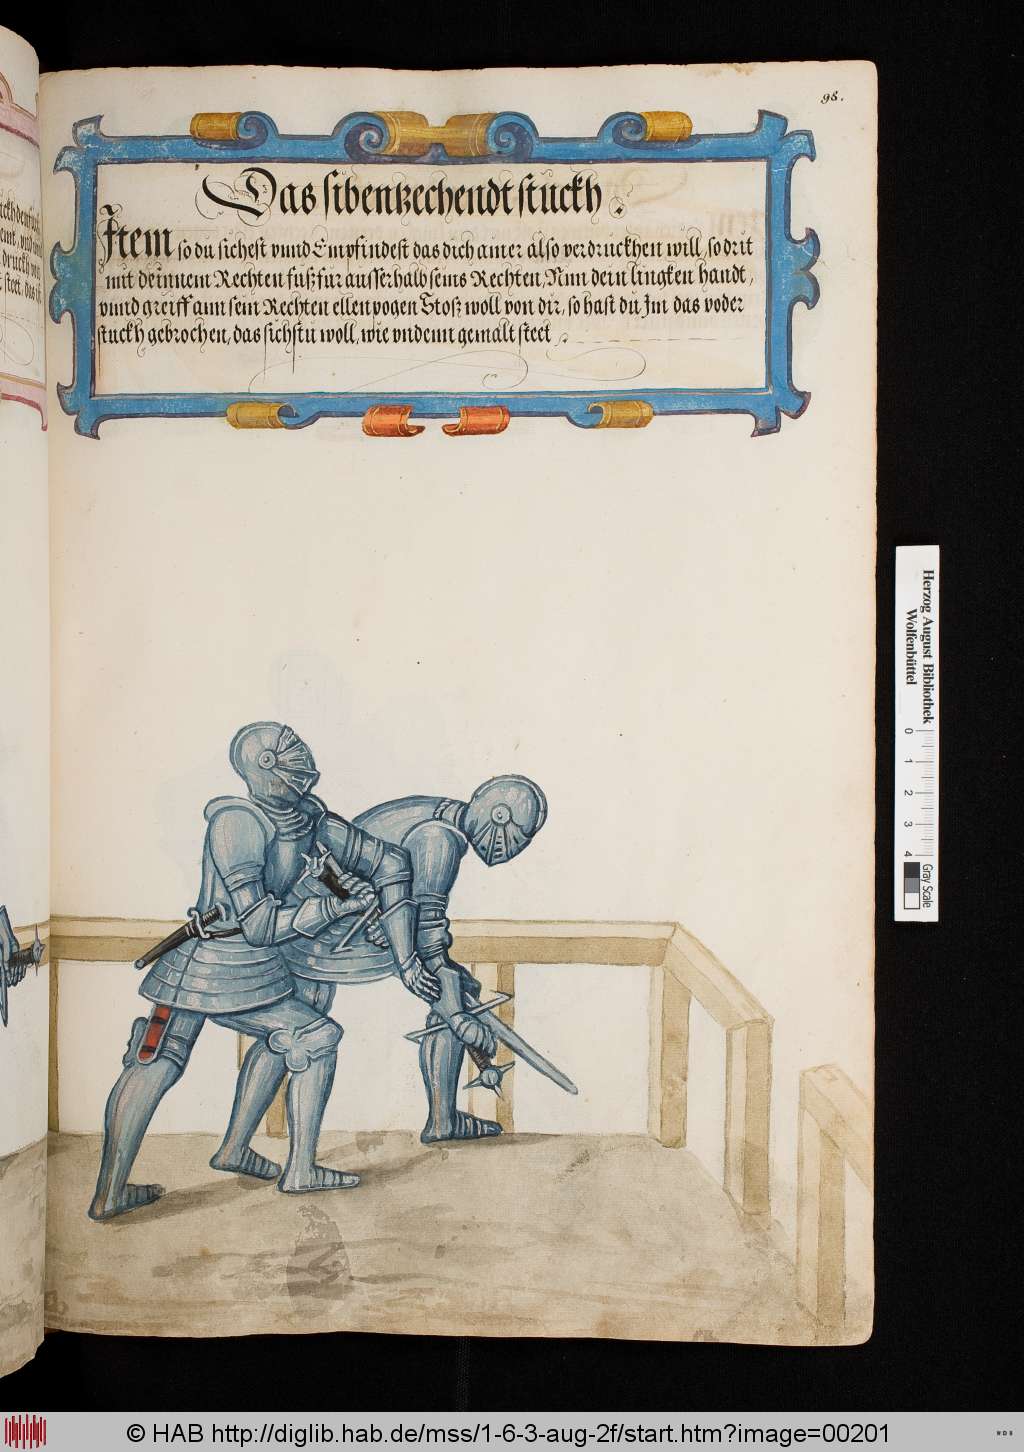 98.
Das sibentzechendt stuckh.
Item so du sichest vnnd Empfindest das dich ainer also verdruckhen will, so drit
mit deinnem Rechten fuß für ausserhalb seins Rechten, Nim dein lingken handt,
vnnd greiff ann sein Rechten ellenpogen Stoß woll von dir, so hast du Im das voder
stuckh gebrochen, das sichstu woll, wie vndenn gemalt steet
Herzog August Bibliothek
Wolfenbüttel
0 1 2 3 4
Gray Scale
© HAB http://diglib.hab.de/mss/1-6-3-aug-2f/start.htm?image=00201